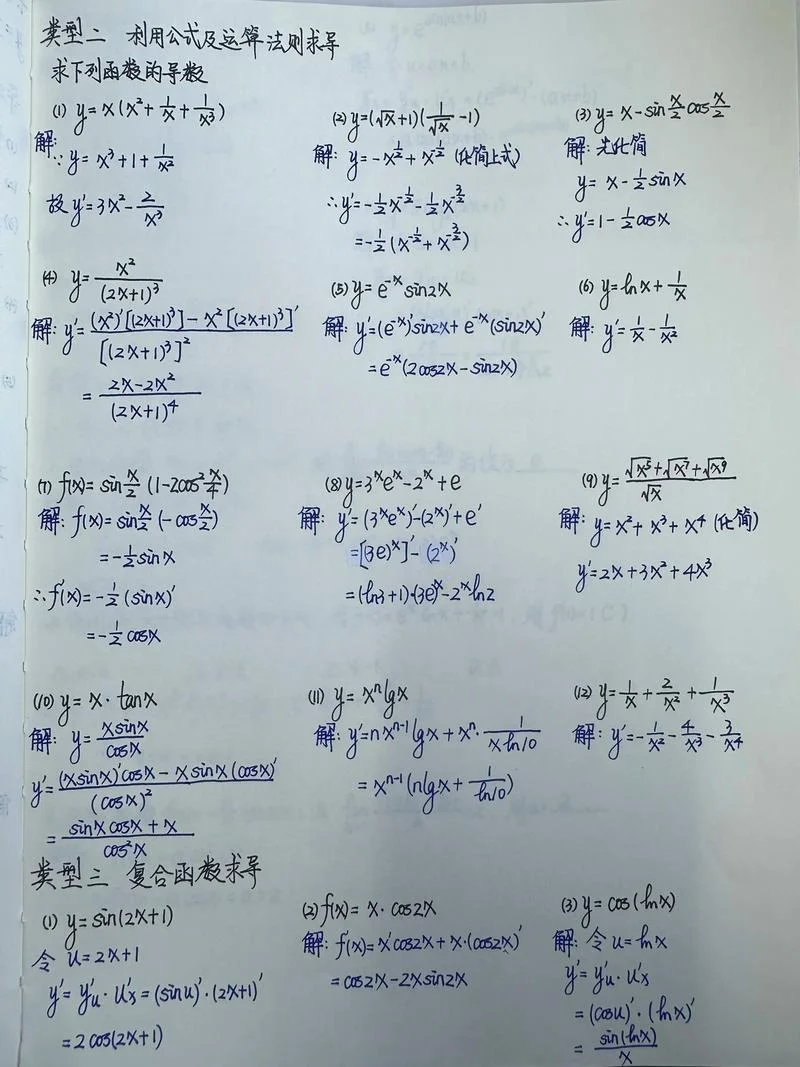 类型二 利用公式及运算法则求导
求下列函数的导数
(1) y=x(x²+1/x+1/x³)
解:
∵y=x³+1+1/x²
故 y′=3x²-2/x³
(2) y=(√x+1)(1/√x-1)
解: y=-x^(1/2)+x^(-1/2) (化简上式)
∴y′=-1/2x^(-1/2)-1/2x^(-3/2)
=-1/2(x^(-1/2)+x^(-3/2))
(3) y=x-sin x/2 cos x/2
解: 先化简
y=x-1/2sinx
∴y′=1-1/2cosx
(4) y=x²/(2x+1)³
解: y′=((x²)′[(2x+1)³]-x²[(2x+1)³]′)/[(2x+1)³]²
=(2x-2x²)/(2x+1)⁴
(5) y=e^(-x)sin2x
解: y′=(e^(-x))′sin2x+e^(-x)(sin2x)′
=e^(-x)(2cos2x-sin2x)
(6) y=lnx+1/x
解: y′=1/x-1/x²
(7) f(x)=sin x/2 (1-2cos² x/4)
解: f(x)=sin x/2 (-cos x/2)
=-1/2sinx
∴f′(x)=-1/2(sinx)′
=-1/2cosx
(8) y=3^x e^x-2^x+e
解: y′=(3^x e^x)′-(2^x)′+e′
=[(3e)^x]′-(2^x)′
=(ln3+1)·(3e)^x-2^x ln2
(9) y=(√x⁵+√x⁷+√x⁹)/√x
解: y=x²+x³+x⁴ (化简)
y′=2x+3x²+4x³
(10) y=x·tanx
解: y=xsinx/cosx
y′=((xsinx)′cosx-xsinx(cosx)′)/(cosx)²
=(sinxcosx+x)/cos²x
(11) y=xⁿlgx
解: y′=nx^(n-1)lgx+xⁿ·1/(xln10)
=x^(n-1)(nlgx+1/ln10)
(12) y=1/x+2/x²+1/x³
解: y′=-1/x²-4/x³-3/x⁴
类型三 复合函数求导
(1) y=sin(2x+1)
令 u=2x+1
y′=y′u·u′x=(sinu)′·(2x+1)′
=2cos(2x+1)
(2) f(x)=x·cos2x
解: f′(x)=x′cos2x+x·(cos2x)′
=cos2x-2xsin2x
(3) y=cos(lnx)
解: 令 u=lnx
y′=y′u·u′x
=(cosu)′·(lnx)′
=sin(lnx)/x